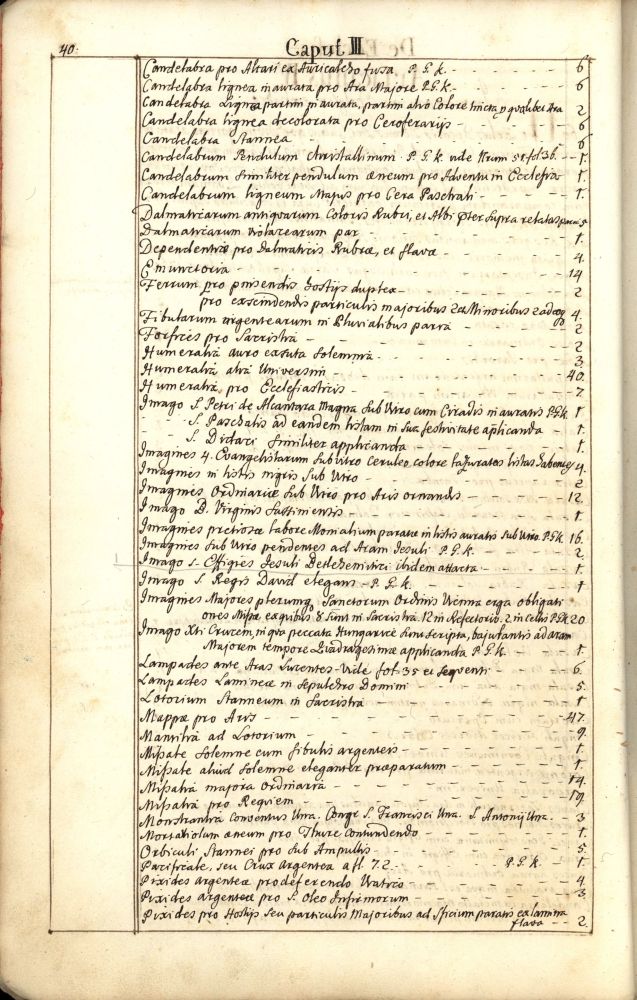 40.
Caput III
Candelabra pro Altari ex Auricalcho fusa P. G. K. - - - 6
Candelabra lignea inaurata pro Ara Majore P.G.K. - - - 6
Candelabra Lignea partim inaurata, partim alio Colore tincta p qualibet Ara 2
Candelabra lignea decolorata pro Ceroferarijs - - - 6
Candelabra Stannea - - - 6
Candelabrum Pendulum christallinum. P. G. K. vide Nrum 51 fol 36. - - 1.
Candelabrum Similiter pendulum æneum pro Adventu in Ecclesia - 1.
Candelabrum ligneum Majus pro Cera Paschali - - - 1.
Dalmaticarum antiquarum Coloris Rubri, et Albi pter Supra relatas paria 5
Dalmaticarum violacearum par - - - 1.
Dependentiæ pro Dalmaticis Rubræ, et flavæ - - - 4.
Emunctoria - - - 14
Ferrum pro pinsendis hostijs duplex - - - 2
pro exscindendis particulis majoribus 2 et Minoribus 2 4.
Fibularum argentearum in Pluvialibus paria - - - 2
Forfices pro Sacristia - - - 2
Humeralia auro exsuta Solemnia - - - 3.
Humeralia alia Universim - - - 40.
Humeralia pro Ecclesiasticis - - - 7.
Imago S. Petri de Alcantara Magna Sub Vitro cum Ciradis inauratis P.G.K. 1
- - S. Paschalis ad eandem listam in Sua festivitate aplicanda - 1.
- - S. Didaci Similiter applicanda - - - 1.
Imagines 4. Evangelistarum Sub vitro Ceruleo colore listas habentes 4.
Imagines in listis nigris Sub Vitro - - - 2
Imagines Ordinariæ Sub Vitro pro Aris ornandis - - - 12.
Imago B. Virginis Sassiniensis - - - 1.
Imagines pretiosæ labore Monialium paratæ in listis auratis Sub Vitro P.G.K. 16.
Imagines Sub Vitro pendentes ad Aram Jesuli P. G. K. - - 2.
Imago S. Effigies Jesuli Bethlehemitici ibidem attacta - - - 1
Imago S. Regis David elegans - P. G. K. - - - 1
Imagines Majores plerumq Sanctorum Ordinis Vienna erga obligati
ones Missæ ex quibus 8 Sunt in Sacristia 12 in Refectorio. 2 in cellis P.G.K. 20
Imago Xti Crucem, in quo peccata Hungariæ Sunt scripta, bajulantis ad aram
Majorem tempore Quadragesimæ applicanda P. G. K. - - - 1.
Lampades ante Aras Lucentes - Vide fol. 35 et Sequenti - - - 6.
Lampades Lamineæ in Sepulchro Domini - - - 5.
Lotorium Stanneum in Sacristia - - - 1
Mappæ pro Aris - - - 47.
Mantilia ad Lotorium - - - 9.
Missale Solemne cum fibulis argenteis - - - 1.
Missale aliud Solemne eleganter præparatum - - - 1.
Missalia majora Ordinaria - - - 14.
Missalia pro Requiem - - - 19.
Monstrantia Conventus Una. Congr S. Francisci Una. S. Antonij Una. - - 3
Mortariolum æneum pro Thure contundendo - - - 1.
Orbiculi Stannei pro Sub Ampullis - - - 5.
Pacificale, seu Crux Argentea a fl. 72. - - P. G. K. - 1.
Pixides argenteæ pro deferendo Viatico - - - 4
Pixides argenteæ pro S. Oleo Infirmorum - - - 3.
Pixides pro Hostijs seu particulis Majoribus ad Officium paratis ex lamina
flava - - 2.